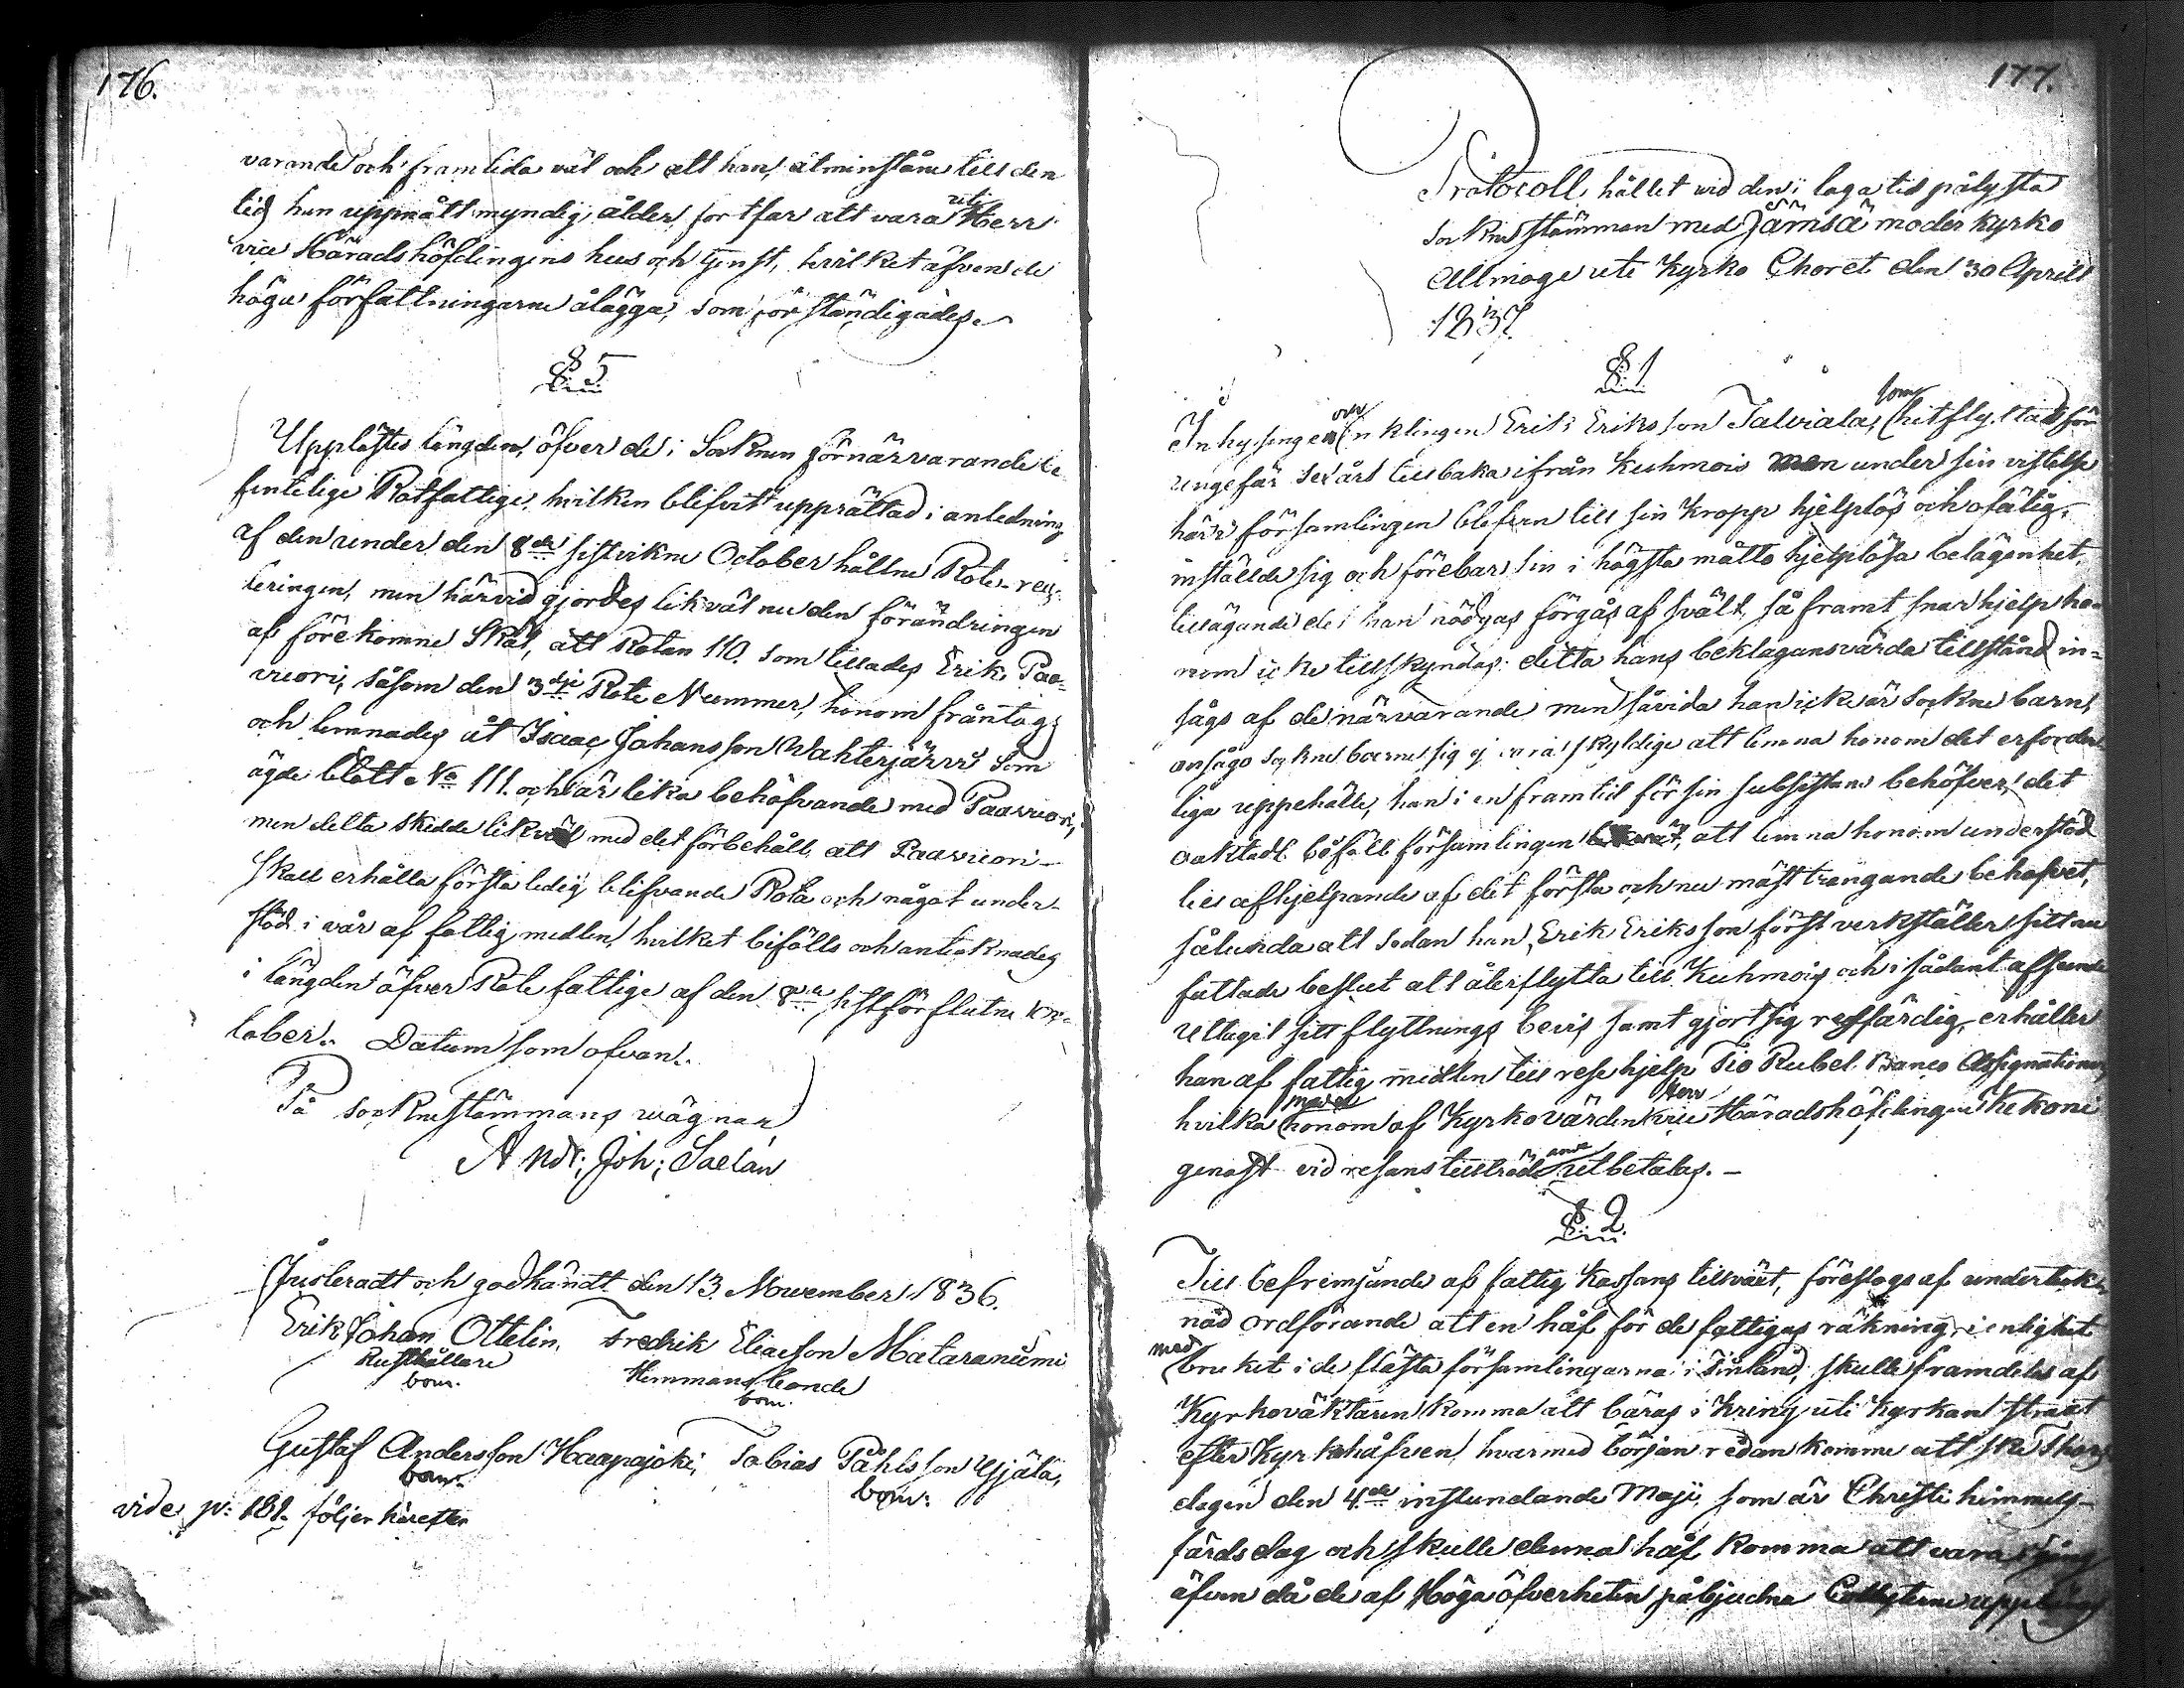 176.
varande och framtida väl och att han, åtminstone till den
tid han uppnått myndig ålder, fortfar att vara uti Herr
vice Häradshöfdingens hus och tjenst, hvilket äfven de
höga författningarne ålägga, som förständigades.
§ 5
Upplästes längden, öfver de i Socknen förnärvarande be-
fintelige Rotfattige, hvilken blifvit upprättad i anledning
af den under den 8de sistvikne October hållne Rote-reg-
leringen, men härvid gjordes likväl nu den förändringen
af förekomne Skäl, att Rotan 110. som tillades Erik Paa-
vuori, såsom den 3dje Rote Nummer, honom fråntogs
och lemnades åt Isaac Johansson Wahterjärvi som
ägde blott No 111. och är lika behöfvande med Paavuori,
men detta skedde likväl med det förbehåll att Paavuori
skall erhålla första ledig blifvande Rota och något under-
stöd i vår af fattig medlen, hvilket bifölls och antecknades
i längden öfver Rote fattige af den 8de sistförflutne Oc-
tober. Datum som ofvan.
På Socknestämmans wägnar
Andr: Joh: Saelan
Justeradt och godkändt den 13 November 1836.
Erik Johan Ottelin, Fredrik Eliaeson Mataraniemi
Rusthållare Hemmans bonde
bom. bom.
Gustaf Andersson Haapajoki, Tobias Påhlsson Yijälä,
bom. bom.
vide p: 181. följer härefter
177.
Protocoll, hållet vid den i laga tid pålysta
socknestämman med Jämsä moderkyrko
Allmoge uti Kyrko Choret den 30 April
1837.
§ 1
Inhysingen och Enklingen Erik Eriksson Talviala, som hitflyttad för
ungefär sex års tillbaka ifrån Kuhmois men under sin vistelse
här i församlingen blefven till sin Kropp hjelplös och ofälig,
inställde sig och förebar sin i högsta måtto hjelplösa belägenhet,
tillägande det han nödgas förgås af svält, så framt snar hjelp ho-
nom icke tillskyndas: detta hans beklagansvärda tillstånd in-
sågs af de närvarande men såvida han icke är Sockne barn,
ansågo Socknеboerne sig ej vara skyldige att lemna honom det erforder-
liga uppehälle, han i en framtid för sin subsistans behöfver, det
oaktadt biföll församlingen att lemna honom understöd
till afhjelpande af det första och nu mäst trängande behofvet,
sålunda att sedan han, Erik Eriksson först verkställer sitt nu
fattade beslut att återflytta till Kuhmois och i sådant afseende
uttagit sitt flyttnings bevis samt gjort sig resfärdig, erhåller
han af fattig medlen till rese hjelp Tio Rubel Banco Assignationer
hvilka honom af Kyrkovärden Herr vice Häradshöfdingen Kekoni
genast vid resans tillträdande utbetalas. -
§ 2.
Till befremjande af fattig Kassans tillväxt, föreslogs af underteck-
nad ordförande att en håf för de fattigas räkning, i enlighet
med bruket i de flästa församlingarna i Finland, skulle framdeles af
Kyrkoväktaren komma att bäras i kring uti Kyrkan straxt
efter Kyrkohåfven, hvarmed början redan komme att ske Thors
dagen den 4de instundande Maji, som är Christi himmels-
färds dag och skulle denna håf komma att vara i gång
äfven då de af Höga öfverheten påbjudna Collecterne